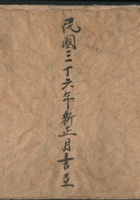 民國三十六年新正月吉立